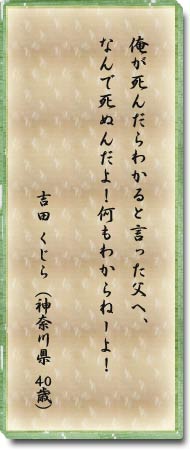 俺が死んだらわかると言った父へ、
なんで死ぬんだよ！何もわからねーよ！
吉田 くじら （神奈川県 40歳）